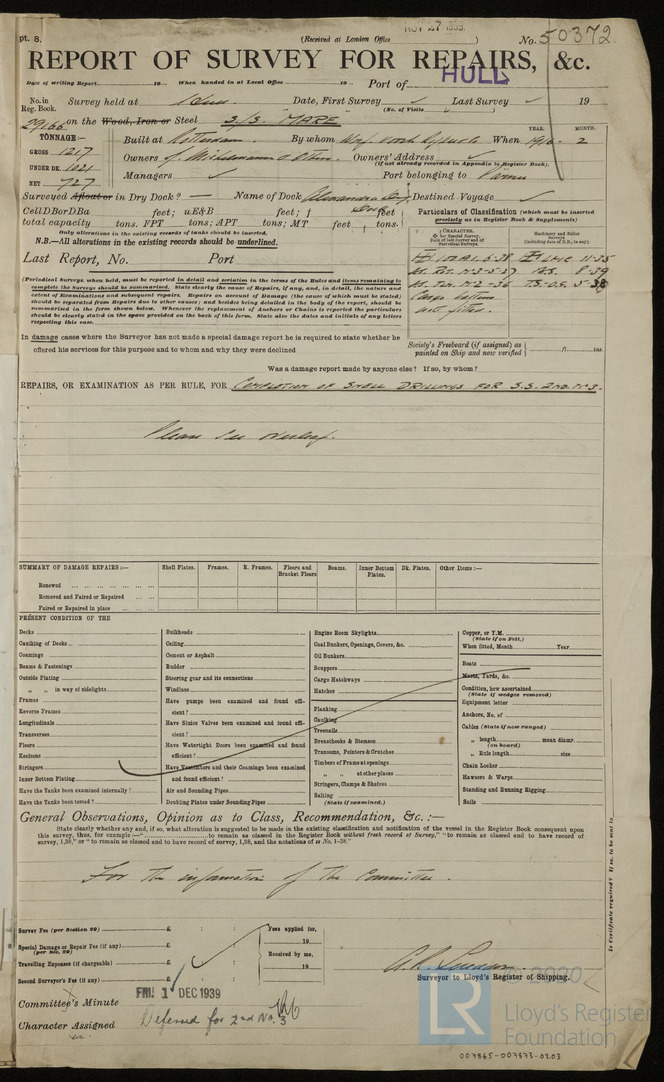 pt. 8.
(Received at London Office NOV 27 1939 )
No. 50372
REPORT OF SURVEY FOR REPAIRS, &c.
Date of writing Report 19 When handed in at Local Office 19 Port of HULL
No. in Reg. Book. Survey held at Hull Date, First Survey Last Survey 19
(No. of Visits )
29166 on the Wood, Iron or Steel S/S. MARE
TONNAGE:— Built at Rotterdam By whom When 1916 - 2
YEAR. MONTH.
GROSS 1217
Owners Owners' Address
(if not already recorded in Appendix to Register Book).
UNDER DK. 1021
NET 727
Managers Port belonging to Parnu
Surveyed Afloat or in Dry Dock? Name of Dock Alexandra Destined Voyage
CellDBorDBa feet; uE&B feet; f feet
total capacity tons. FPT tons; APT tons; MT feet tons.
Only alterations in the existing records of tanks should be inserted.
N.B.—All alterations in the existing records should be underlined.
Last Report, No. Port
Particulars of Classification (which must be inserted
precisely as in Register Book & Supplements)
CHARACTER,
for Special Survey,
Date of last Survey and of
Periodical Surveys.
Machinery and Boiler
Surveys
(Including date of N.B., in any).
100A1 5-38 LMC 11-35
3-5-37 B.S. 8-39
2-36 T.S.-O.G. 5-38
Cargo battens
not fitted.
(Periodical Surveys, when held, must be reported in detail and seriatim in the terms of the Rules and items remaining to
complete the Surveys should be summarised. State clearly the cause of Repairs, if any, and, in detail, the nature and
extent of Examinations and subsequent repairs. Repairs on account of Damage (the cause of which must be stated)
should be separated from Repairs due to other causes; and besides being detailed in the body of the report, should be
summarised in the form shown below. Whenever the replacement of Anchors or Chains is reported the particulars
should be clearly stated in the space provided on the back of this form. State also the dates and initials of any letters
respecting this case.
In damage cases where the Surveyor has not made a special damage report he is required to state whether he
offered his services for this purpose and to whom and why they were declined
Society's Freeboard (if assigned) as
painted on Ship and now verified
Was a damage report made by anyone else? If so, by whom?
REPAIRS, OR EXAMINATION AS PER RULE, FOR COMPLETION OF SMALL DRILLINGS FOR S.S. 2ND. No 3.
Please see overleaf.
SUMMARY OF DAMAGE REPAIRS:— Shell Plates. Frames. R. Frames. Floors and Bracket Floors Beams. Inner Bottom Plates. Dk. Plates. Other Items:—
Renewed
Removed and Faired or Repaired
Faired or Repaired in place
PRESENT CONDITION OF THE
Decks
Caulking of Decks
Coamings
Beams & Fastenings
Outside Plating
„ „ in way of sidelights
Frames
Reverse Frames
Longitudinals
Transverses
Floors
Keelsons
Stringers
Inner Bottom Plating
Have the Tanks been examined internally?
Have the Tanks been tested?
Bulkheads
Ceiling
Cement or Asphalt
Rudder
Steering gear and its connections
Windlass
Have pumps been examined and found effi-
cient?
Have Sluice Valves been examined and found effi-
cient?
Have Watertight Doors been examined and found
efficient?
Have Ventilators and their Coamings been examined
and found efficient?
Air and Sounding Pipes
Doubling Plates under Sounding Pipes
Engine Room Skylights
Coal Bunkers, Openings, Covers, &c.
Oil Bunkers
Scuppers
Cargo Hatchways
Hatches
Planking
Caulking
Treenails
Breasthooks & Stemson
Transoms, Pointers & Crutches
Timbers of Frame at openings
„ „ at other places
Stringers, Clamps & Shelves
Salting
(State if examined.)
Copper, or Y.M.
(State if on Felt.)
When fitted, Month Year
Boats
Masts, Yards, &c.
Condition, how ascertained
(State if wedges removed)
Equipment letter
Anchors, No. of
Cables (State if now ranged)
„ length mean diamr.
(on board)
„ Rule length size
Chain Locker
Hawsers & Warps
Standing and Running Rigging
Sails
General Observations, Opinion as to Class, Recommendation, &c. :—
State clearly whether any and, if so, what alteration is suggested to be made in the existing classification and notification of the vessel in the Register Book consequent upon
this survey, thus, for example:—“ to remain as classed in the Register Book without fresh record of Survey,” “to remain as classed and to have record of
survey, 1,38,” or “to remain as classed and to have record of survey, 1,38, and the notations of ss No. 1-38.”
For the information of the Committee.
Is Certificate required? If so, to be sent to
Survey Fee (per Section 29) £ : : Fees applied for,
19
Special Damage or Repair Fee (if any) £
(per Sec. 29)
Received by me,
Travelling Expenses (if chargeable) £
19
Second Surveyor's Fee (if any) £
Surveyor to Lloyd's Register of Shipping.
Committee's Minute FRI. 1 DEC 1939
Character Assigned Deferred for 2nd No. 3
LR
Lloyd's Register
Foundation
007865-007873-0203